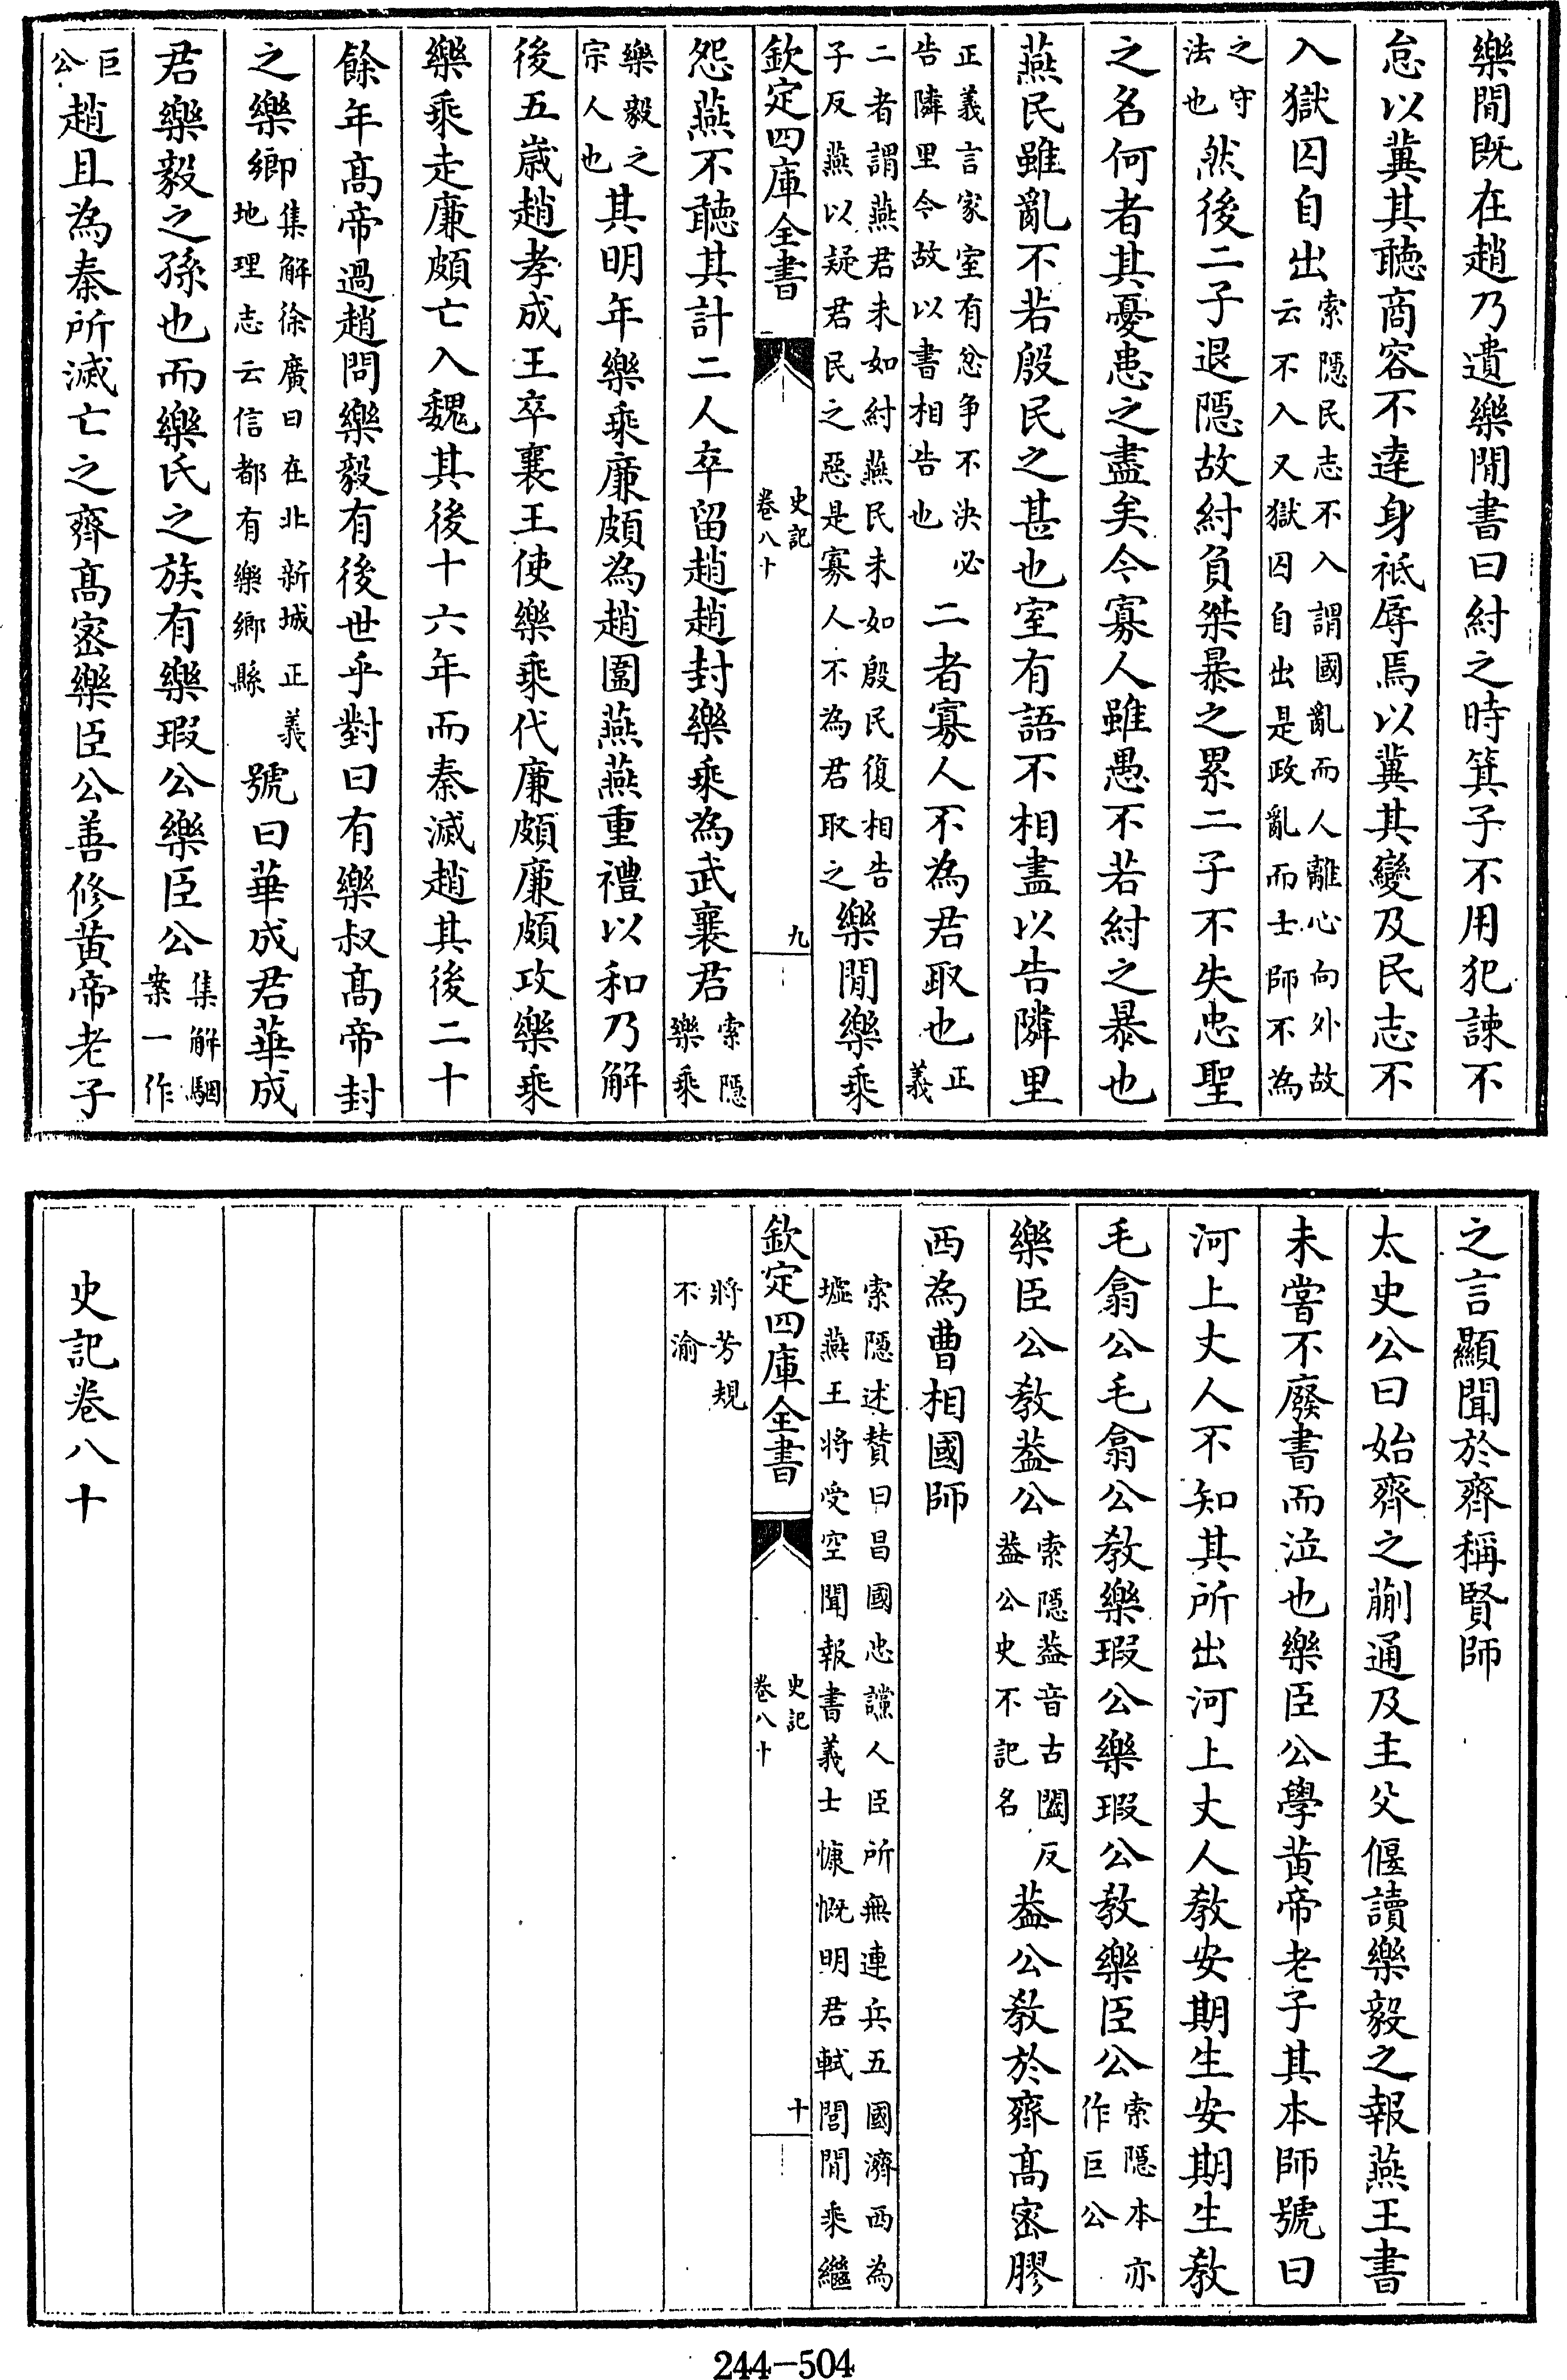 樂閒既在趙乃遺樂閒書曰紂之時箕子不用犯諫不
怠以冀其聽商容不達身祇辱焉以冀其變及民志不
入獄囚自出索隱民志不入謂國亂而人離心向外故云不入又獄囚自出是政亂而士師不為
之守法也然後二子退隱故紂負桀暴之累二子不失忠聖
之名何者其憂患之盡矣今寡人雖愚不若紂之暴也
燕民雖亂不若殷民之甚也室有語不相盡以告隣里
正義言家室有忿爭不決必告隣里今故以書相告也二者寡人不為君取也正義
二者謂燕君未如紂燕民未如殷民復相告子反燕以疑君民之惡是寡人不為君取之樂閒樂乘
欽定四庫全書 史記卷八十 九
怨燕不聽其計二人卒留趙趙封樂乘為武襄君索隱樂乘
樂毅之宗人也其明年樂乘廉頗為趙圍燕燕重禮以和乃解
後五歲趙孝成王卒襄王使樂乘代廉頗廉頗攻樂乘
樂乘走廉頗亡入魏其後十六年而秦滅趙其後二十
餘年高帝過趙問樂毅有後世乎對曰有樂叔高帝封
之樂鄉集解徐廣曰在北新城正義地理志云信都有樂鄉縣號曰華成君華成
君樂毅之孫也而樂氏之族有樂瑕公樂臣公集解駰案一作
巨公趙且為秦所滅亡之齊高密樂臣公善修黃帝老子
之言顯聞於齊稱賢師
太史公曰始齊之蒯通及主父偃讀樂毅之報燕王書
未嘗不廢書而泣也樂臣公學黃帝老子其本師號曰
河上丈人不知其所出河上丈人教安期生安期生教
毛翕公毛翕公教樂瑕公樂瑕公教樂臣公索隱本亦作巨公
樂臣公教葢公索隱葢音古闔反葢公史不記名葢公教於齊高密膠
西為曹相國師
索隱述贊曰昌國忠讜人臣所無連兵五國濟西為墟燕王將受空聞報書義士慷慨明君軾閭閒乘繼
欽定四庫全書 史記卷八十 十
將芳規不渝
史記卷八十
244-504